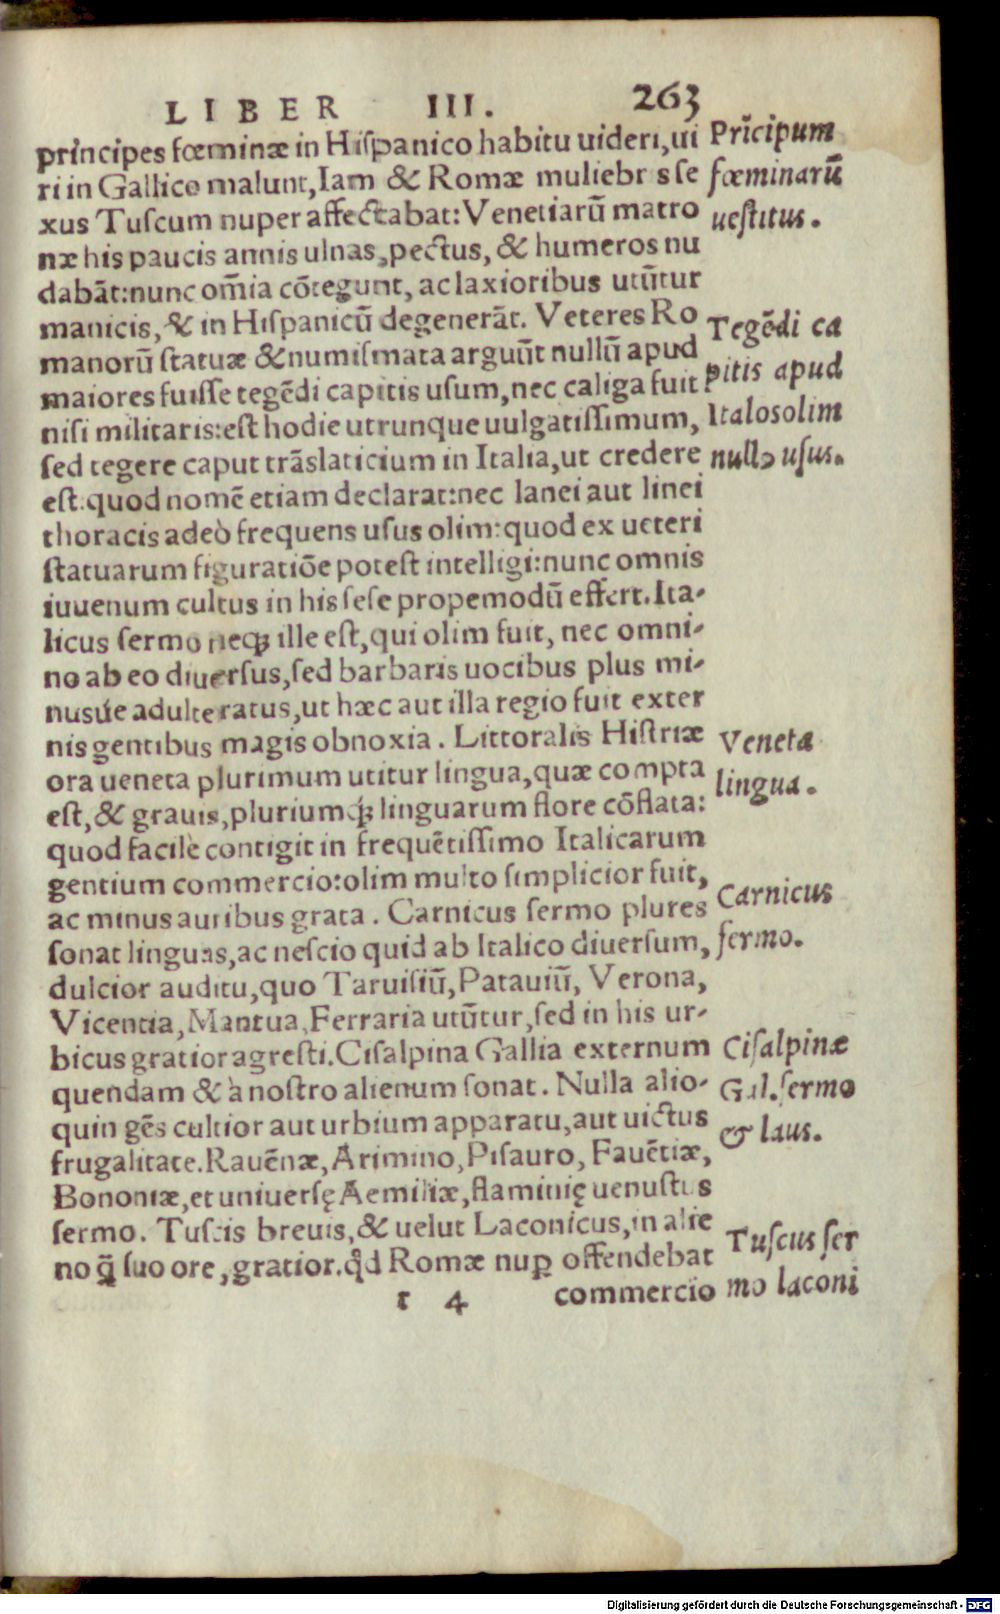 LIBER III. 263
principes fœminæ in Hiſpanico habitu uideri, ui
ri in Gallico malunt, Iam & Romæ muliebr s ſe
xus Tuſcum nuper affectabat: Venetiarũ matro
næ his paucis annis ulnas, pectus, & humeros nu
dabãt: nunc om̃ia cõtegunt, ac laxioribus utũtur
manicis, & in Hiſpanicũ degenerãt. Veteres Ro
manorũ ſtatuæ & numiſmata arguũt nullũ apud
maiores fuiſſe tegẽdi capitis uſum, nec caliga fuit
niſi militaris: eſt hodie utrunque uulgatiſſimum,
ſed tegere caput trãſlaticium in Italia, ut credere
eſt. quod nomẽ etiam declarat: nec lanei aut linei
thoracis adeò frequens uſus olim: quod ex ueteri
ſtatuarum figuratiõe poteſt intelligi: nunc omnis
iuuenum cultus in his ſeſe propemodũ effert. Ita-
licus ſermo neqꝫ ille eſt, qui olim fuit, nec omni-
no ab eo diuerſus, ſed barbaris uocibus plus mi-
nusúe adulteratus, ut hæc aut illa regio fuit exter
nis gentibus magis obnoxia. Littoralis Hiſtriæ
ora ueneta plurimum utitur lingua, quæ compta
eſt, & grauis, pluriumqꝫ linguarum flore cõflata:
quod facilè contigit in frequẽtiſſimo Italicarum
gentium commercio: olim multo ſimplicior fuit,
ac minus auribus grata. Carnicus ſermo plures
ſonat linguas, ac neſcio quid ab Italico diuerſum,
dulcior auditu, quo Taruiſiũ, Patauiũ, Verona,
Vicentia, Mantua, Ferraria utũtur, ſed in his ur-
bicus gratior agreſti. Ciſalpina Gallia externum
quendam & à noſtro alienum ſonat. Nulla alio-
quin gẽs cultior aut urbium apparatu, aut uictus
frugalitate. Rauẽnæ, Arimino, Piſauro, Fauẽtiæ,
Bononiæ, et uniuerſę Aemiliæ, flaminię uenuſtus
ſermo. Tuſcis breuis, & uelut Laconicus, in alie
no q̃ ſuo ore, gratior. qd̕ Romæ nuꝑ offendebat
r 4 commercio
Prĩcipum
fœminarũ
ueſtitus.
Tegẽdi ca
pitis apud
Italos olim
nullo uſus.
Veneta
lingua.
Carnicus
ſermo.
Ciſalpinæ
Gal. ſermo
& laus.
Tuſcus ſer
mo laconi
Digitalisierung gefördert durch die Deutsche Forschungsgemeinschaft - DFG